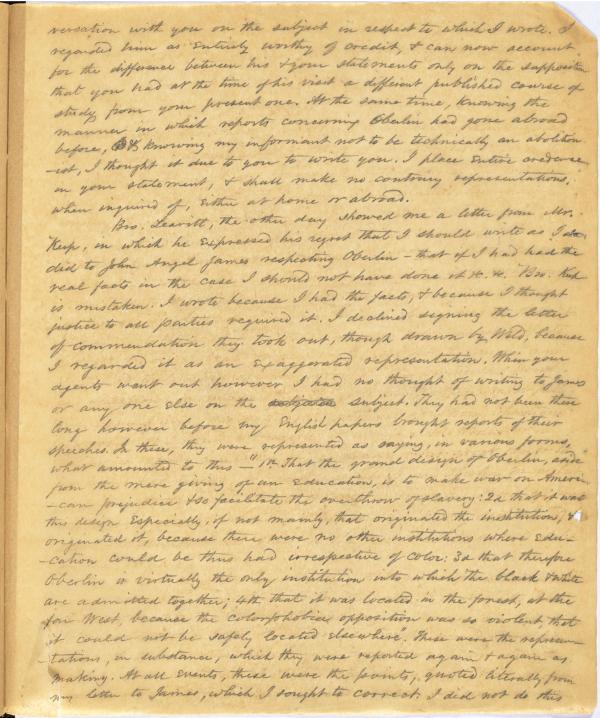 versation with you on the subject in respect to which I wrote. I
regarded him as Entirely worthy of credit, & can now account
for the difference between his & your statements only on the supposition
that you had at the time of his visit a different published course of
study from your present one. At the same time, Knowing the
manner in which reports concerning Oberlin had gone abroad
before, & Knowing my informant not to be technically an abolition
-ist, I thought it due to you to write you. I place Entire credence
in your statement, & shall make no contrary representations,
when inquired of, Either at home or abroad.
Bro. Leavitt, the other day showed me a letter from Mr.
Keep, in which he Expressed his regret that I should write as I
did to John Angel James respecting Oberlin - that if I had had the
real facts in the case I should not have done it &c. &c. Bro. Keep
is mistaken. I wrote because I had the facts, & because I thought
justice to all parties required it. I declined signing the letter
of commendation they took out, though drawn by Weld, because
I regarded it as an Exaggerated representation. When your
agents went out however, I had no thought of writing to James
or any one Else on the subject. They had not been there
long however before my English papers brought reports of their
speeches. In these, they were represented as saying, in various forms,
what amounted to this - "1st That the grand design of Oberlin, aside
from the mere giving of an Education, is to make war on Ameri-
-can prejudice & so facilitate the overthrow of slavery: 2d that it was
this design Especially, if not mainly, that originated the institution, &
originated it, because there were no other institutions where Edu-
-cation could be thus had irrespective of color: 3d that therefore
Oberlin is virtually the only institution into which the black & white
are admitted together; 4th that it was located in the forest, at the
far West, because the colorphobia opposition was so violent, that
it could not be safely located elsewhere. These were the represen-
-tations, in substance, which they were reported again & again as
making. At all Events, these were the points, quoted literally from
my letter to James, which I sought to correct. I did not do this